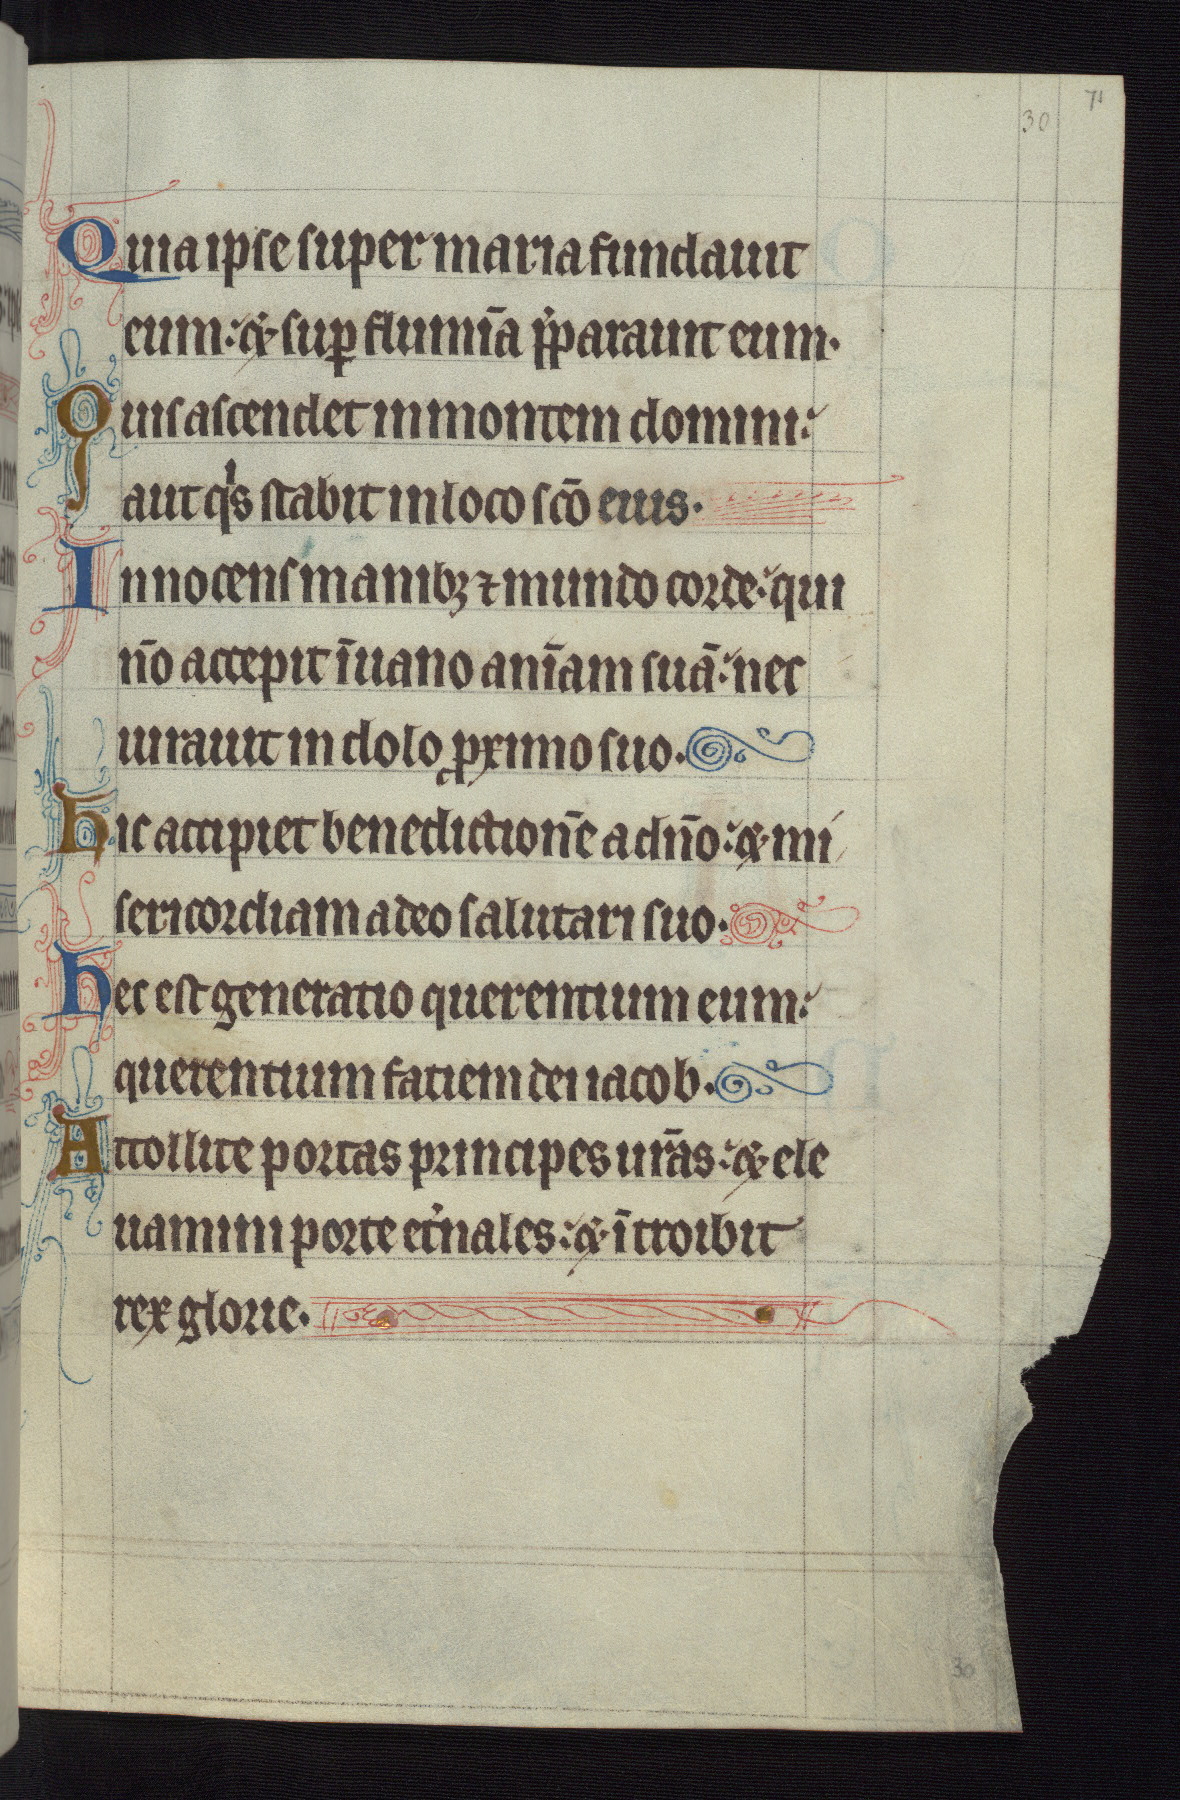 71
30
Quia ipse super maria fundauit
eum: & sup̱ flumīa p̄parauit eum.
Quis ascendet in montem domini:
aut qⁱs stabit in loco scō eius.
Innocens manibꝫ ⁊ mundo corde: qui
nō accepit īuano anīam suā: nec
iurauit in dolo ꝓximo suo.
Hic accipiet benedictionē a dn̄o: & mi
sericordiam a deo salutari suo.
Hec est generatio querentium eum:
querentium faciem dei iacob.
Attollite portas principes ur̄as: & ele
uamini porte et̄nales: & ītroibit
rex glorie.
30